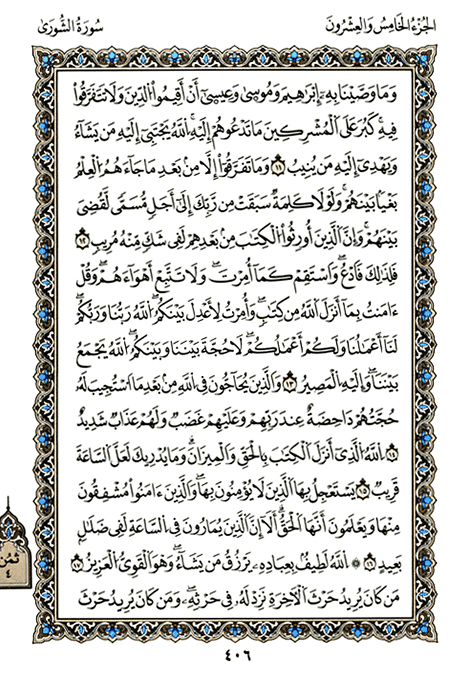 الجُزْءُ الخَامِسُ وَالعِشْرُونَ سُورَةُ الشُّورَىٰ
وَمَا وَصَّيْنَا بِهِۦٓ إِبْرَٰهِيمَ وَمُوسَىٰ وَعِيسَىٰٓ أَنْ أَقِيمُوا۟ الدِّينَ وَلَا تَتَفَرَّقُوا۟
فِيهِ كَبُرَ عَلَى ٱلْمُشْرِكِينَ مَا تَدْعُوهُمْ إِلَيْهِ ٱللَّهُ يَجْتَبِىٓ إِلَيْهِ مَن يَشَآءُ
وَيَهْدِىٓ إِلَيْهِ مَن يُنِيبُ ١١ وَمَا تَفَرَّقُوٓا۟ إِلَّا مِنۢ بَعْدِ مَا جَآءَهُمُ ٱلْعِلْمُ
بَغْيًۢا بَيْنَهُمْ وَلَوْلَا كَلِمَةٌ سَبَقَتْ مِن رَّبِّكَ إِلَىٰٓ أَجَلٍ مُّسَمًّى لَّقُضِىَ
بَيْنَهُمْ وَإِنَّ ٱلَّذِينَ أُورِثُوا۟ ٱلْكِتَٰبَ مِنۢ بَعْدِهِمْ لَفِى شَكٍّ مِّنْهُ مُرِيبٍ ١٢
فَلِذَٰلِكَ فَٱدْعُ وَٱسْتَقِمْ كَمَآ أُمِرْتَ وَلَا تَتَّبِعْ أَهْوَآءَهُمْ وَقُلْ
ءَامَنتُ بِمَآ أَنزَلَ ٱللَّهُ مِن كِتَٰبٍ وَأُمِرْتُ لِأَعْدِلَ بَيْنَكُمُ ٱللَّهُ رَبُّنَا وَرَبُّكُمْ
لَنَآ أَعْمَٰلُنَا وَلَكُمْ أَعْمَٰلُكُمْ لَا حُجَّةَ بَيْنَنَا وَبَيْنَكُمُ ٱللَّهُ يَجْمَعُ
بَيْنَنَا وَإِلَيْهِ ٱلْمَصِيرُ ١٣ وَٱلَّذِينَ يُحَآجُّونَ فِى ٱللَّهِ مِنۢ بَعْدِ مَا ٱسْتُجِيبَ لَهُۥ
حُجَّتُهُمْ دَاحِضَةٌ عِندَ رَبِّهِمْ وَعَلَيْهِمْ غَضَبٌ وَلَهُمْ عَذَابٌ شَدِيدٌ
١٤ ٱللَّهُ ٱلَّذِىٓ أَنزَلَ ٱلْكِتَٰبَ بِٱلْحَقِّ وَٱلْمِيزَانَ وَمَا يُدْرِيكَ لَعَلَّ ٱلسَّاعَةَ
قَرِيبٌ ١٥ يَسْتَعْجِلُ بِهَا ٱلَّذِينَ لَا يُؤْمِنُونَ بِهَا وَٱلَّذِينَ ءَامَنُوا۟ مُشْفِقُونَ
مِنْهَا وَيَعْلَمُونَ أَنَّهَا ٱلْحَقُّ أَلَآ إِنَّ ٱلَّذِينَ يُمَارُونَ فِى ٱلسَّاعَةِ لَفِى ضَلَٰلٍۭ
بَعِيدٍ ١٦ ۞ ٱللَّهُ لَطِيفٌۢ بِعِبَادِهِۦ يَرْزُقُ مَن يَشَآءُ وَهُوَ ٱلْقَوِىُّ ٱلْعَزِيزُ ١٧
مَن كَانَ يُرِيدُ حَرْثَ ٱلْءَاخِرَةِ نَزِدْ لَهُۥ فِى حَرْثِهِۦ وَمَن كَانَ يُرِيدُ حَرْثَ
ثُمُن
٤
٤٠٦